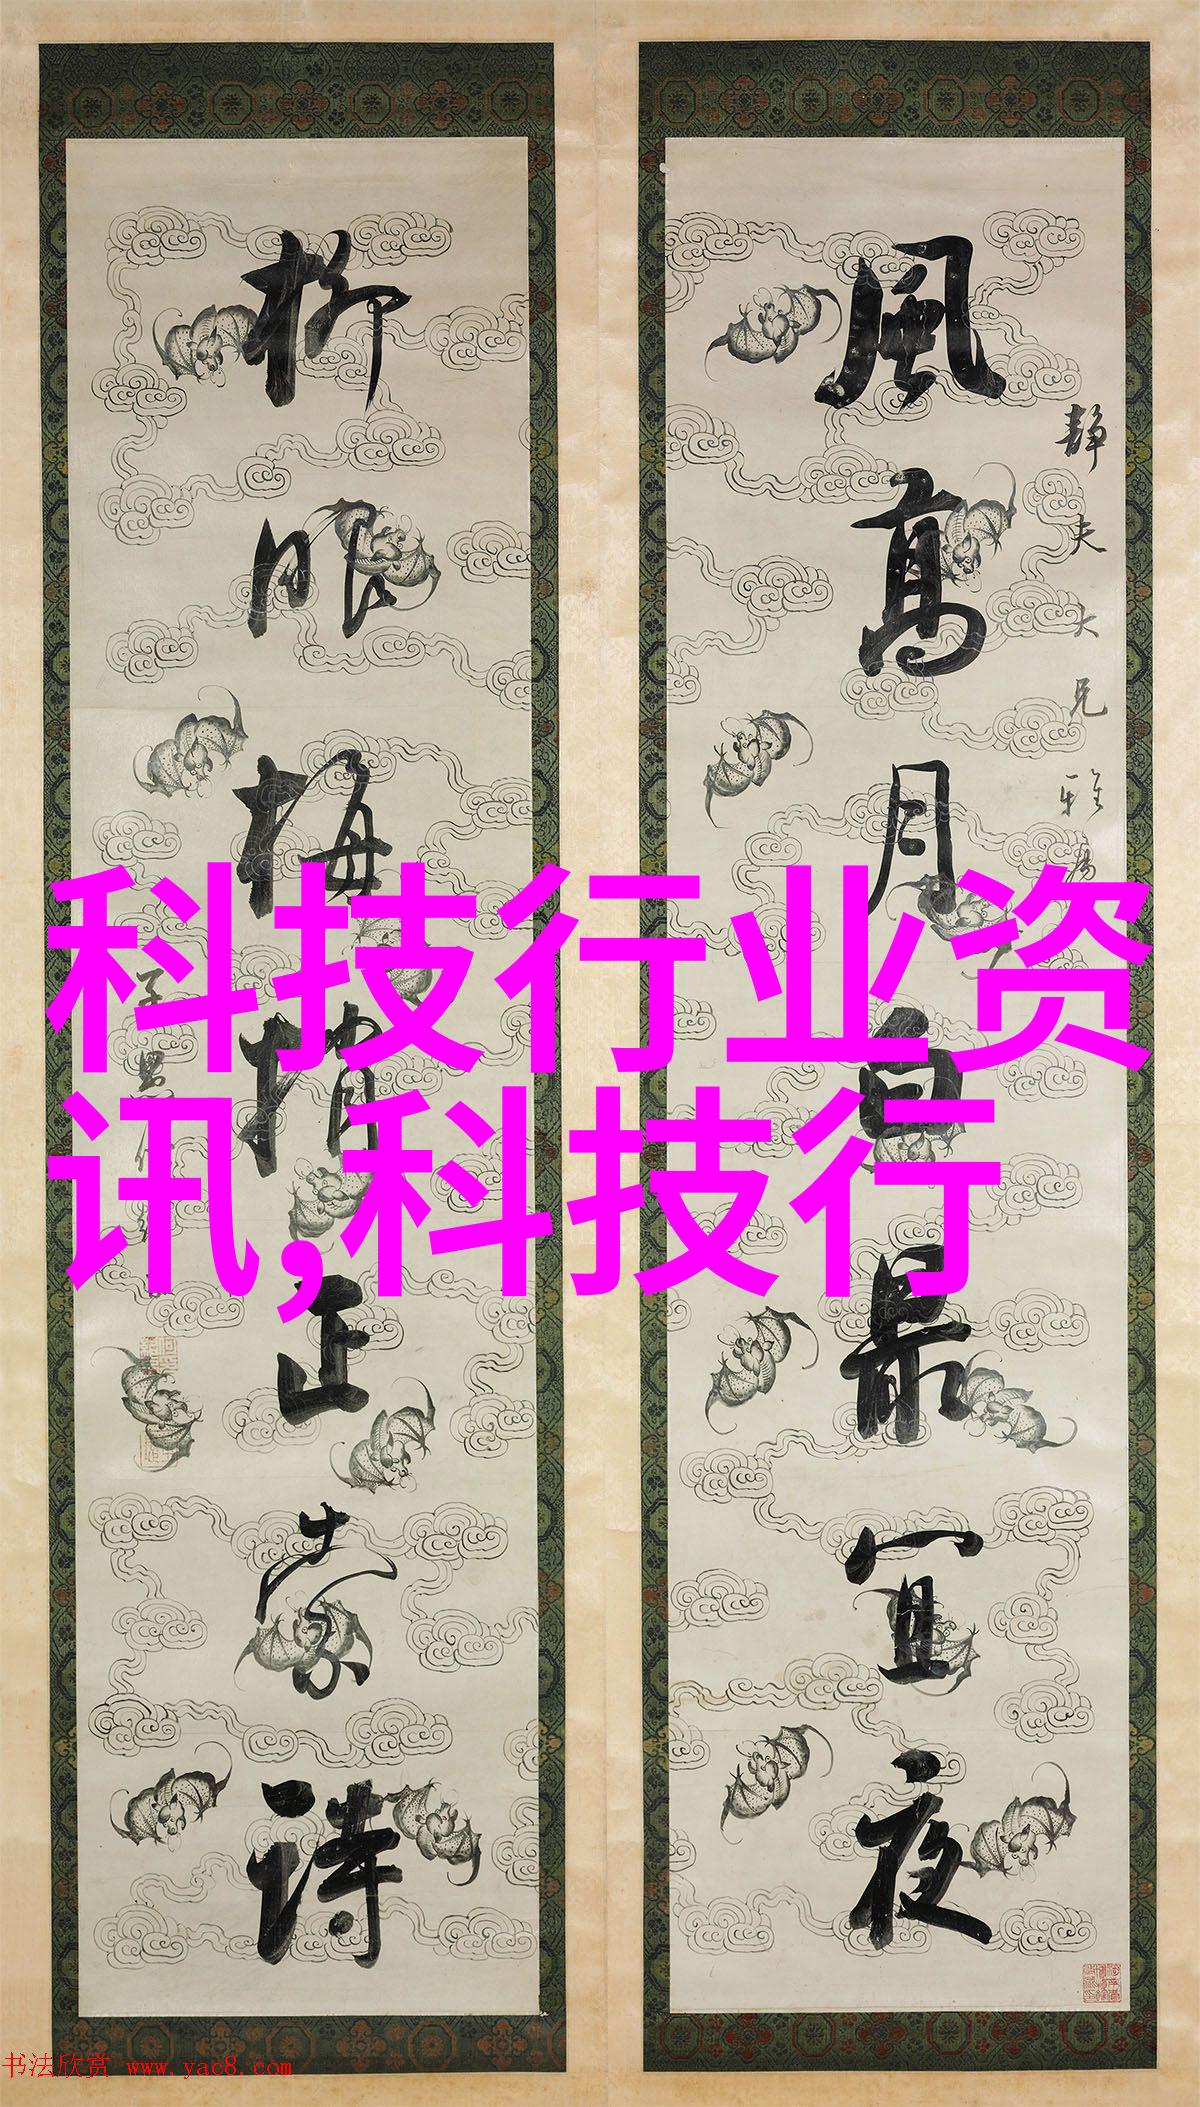 靜夫大兄雅屬
風高月白最宜夜
柳眼梅梢正索詩
科技行业资
讯,科技行
书法欣赏 www.yac8.com